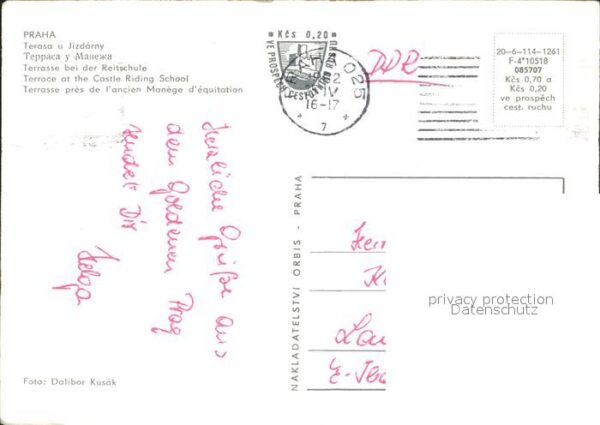 PRAHA
Terasa u Jízdárny
Терраса у Манежа
Terrasse bei der Reitschule
Terrace at the Castle Riding School
Terrasse près de l'ancien Manège d'équitation
Kčs 0,20
VE PROSPĚCH CEST. RUCHU
025
IV
16-17
7
DDR
20-6-114-1261
F-4*10518
085707
Kčs 0,70 a
Kčs 0,20
ve prospěch
cest. ruchu
Herzliche Grüße aus
dem Goldenen Prag
sendet Dir
Helga
NAKLADATELSTVÍ ORBIS - PRAHA
privacy protection
Datenschutz
Foto: Dalibor Kusák